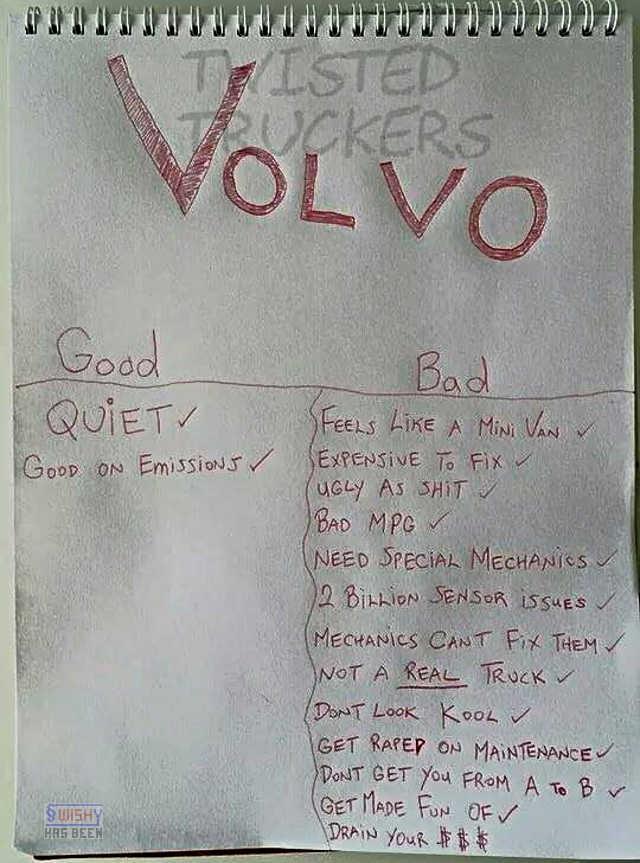 TWISTED
TRUCKERS
VOLVO
Good
QUiET ✓
GOOD ON EMISSIONS ✓
Bad
FEELS LIKE A MINI VAN ✓
EXPENSIVE TO FIX ✓
UGLY AS SHIT ✓
BAD MPG ✓
NEED SPECIAL MECHANICS ✓
2 BILLION SENSOR iSSUES ✓
MECHANICS CANT FIX THEM ✓
NOT A REAL TRUCK ✓
DONT LOOK KOOL ✓
GET RAPED ON MAINTENANCE ✓
DONT GET YOU FROM A TO B ✓
GET MADE FUN OF ✓
DRAIN YOUR $ $ $
SWISHY
HAS BEEN